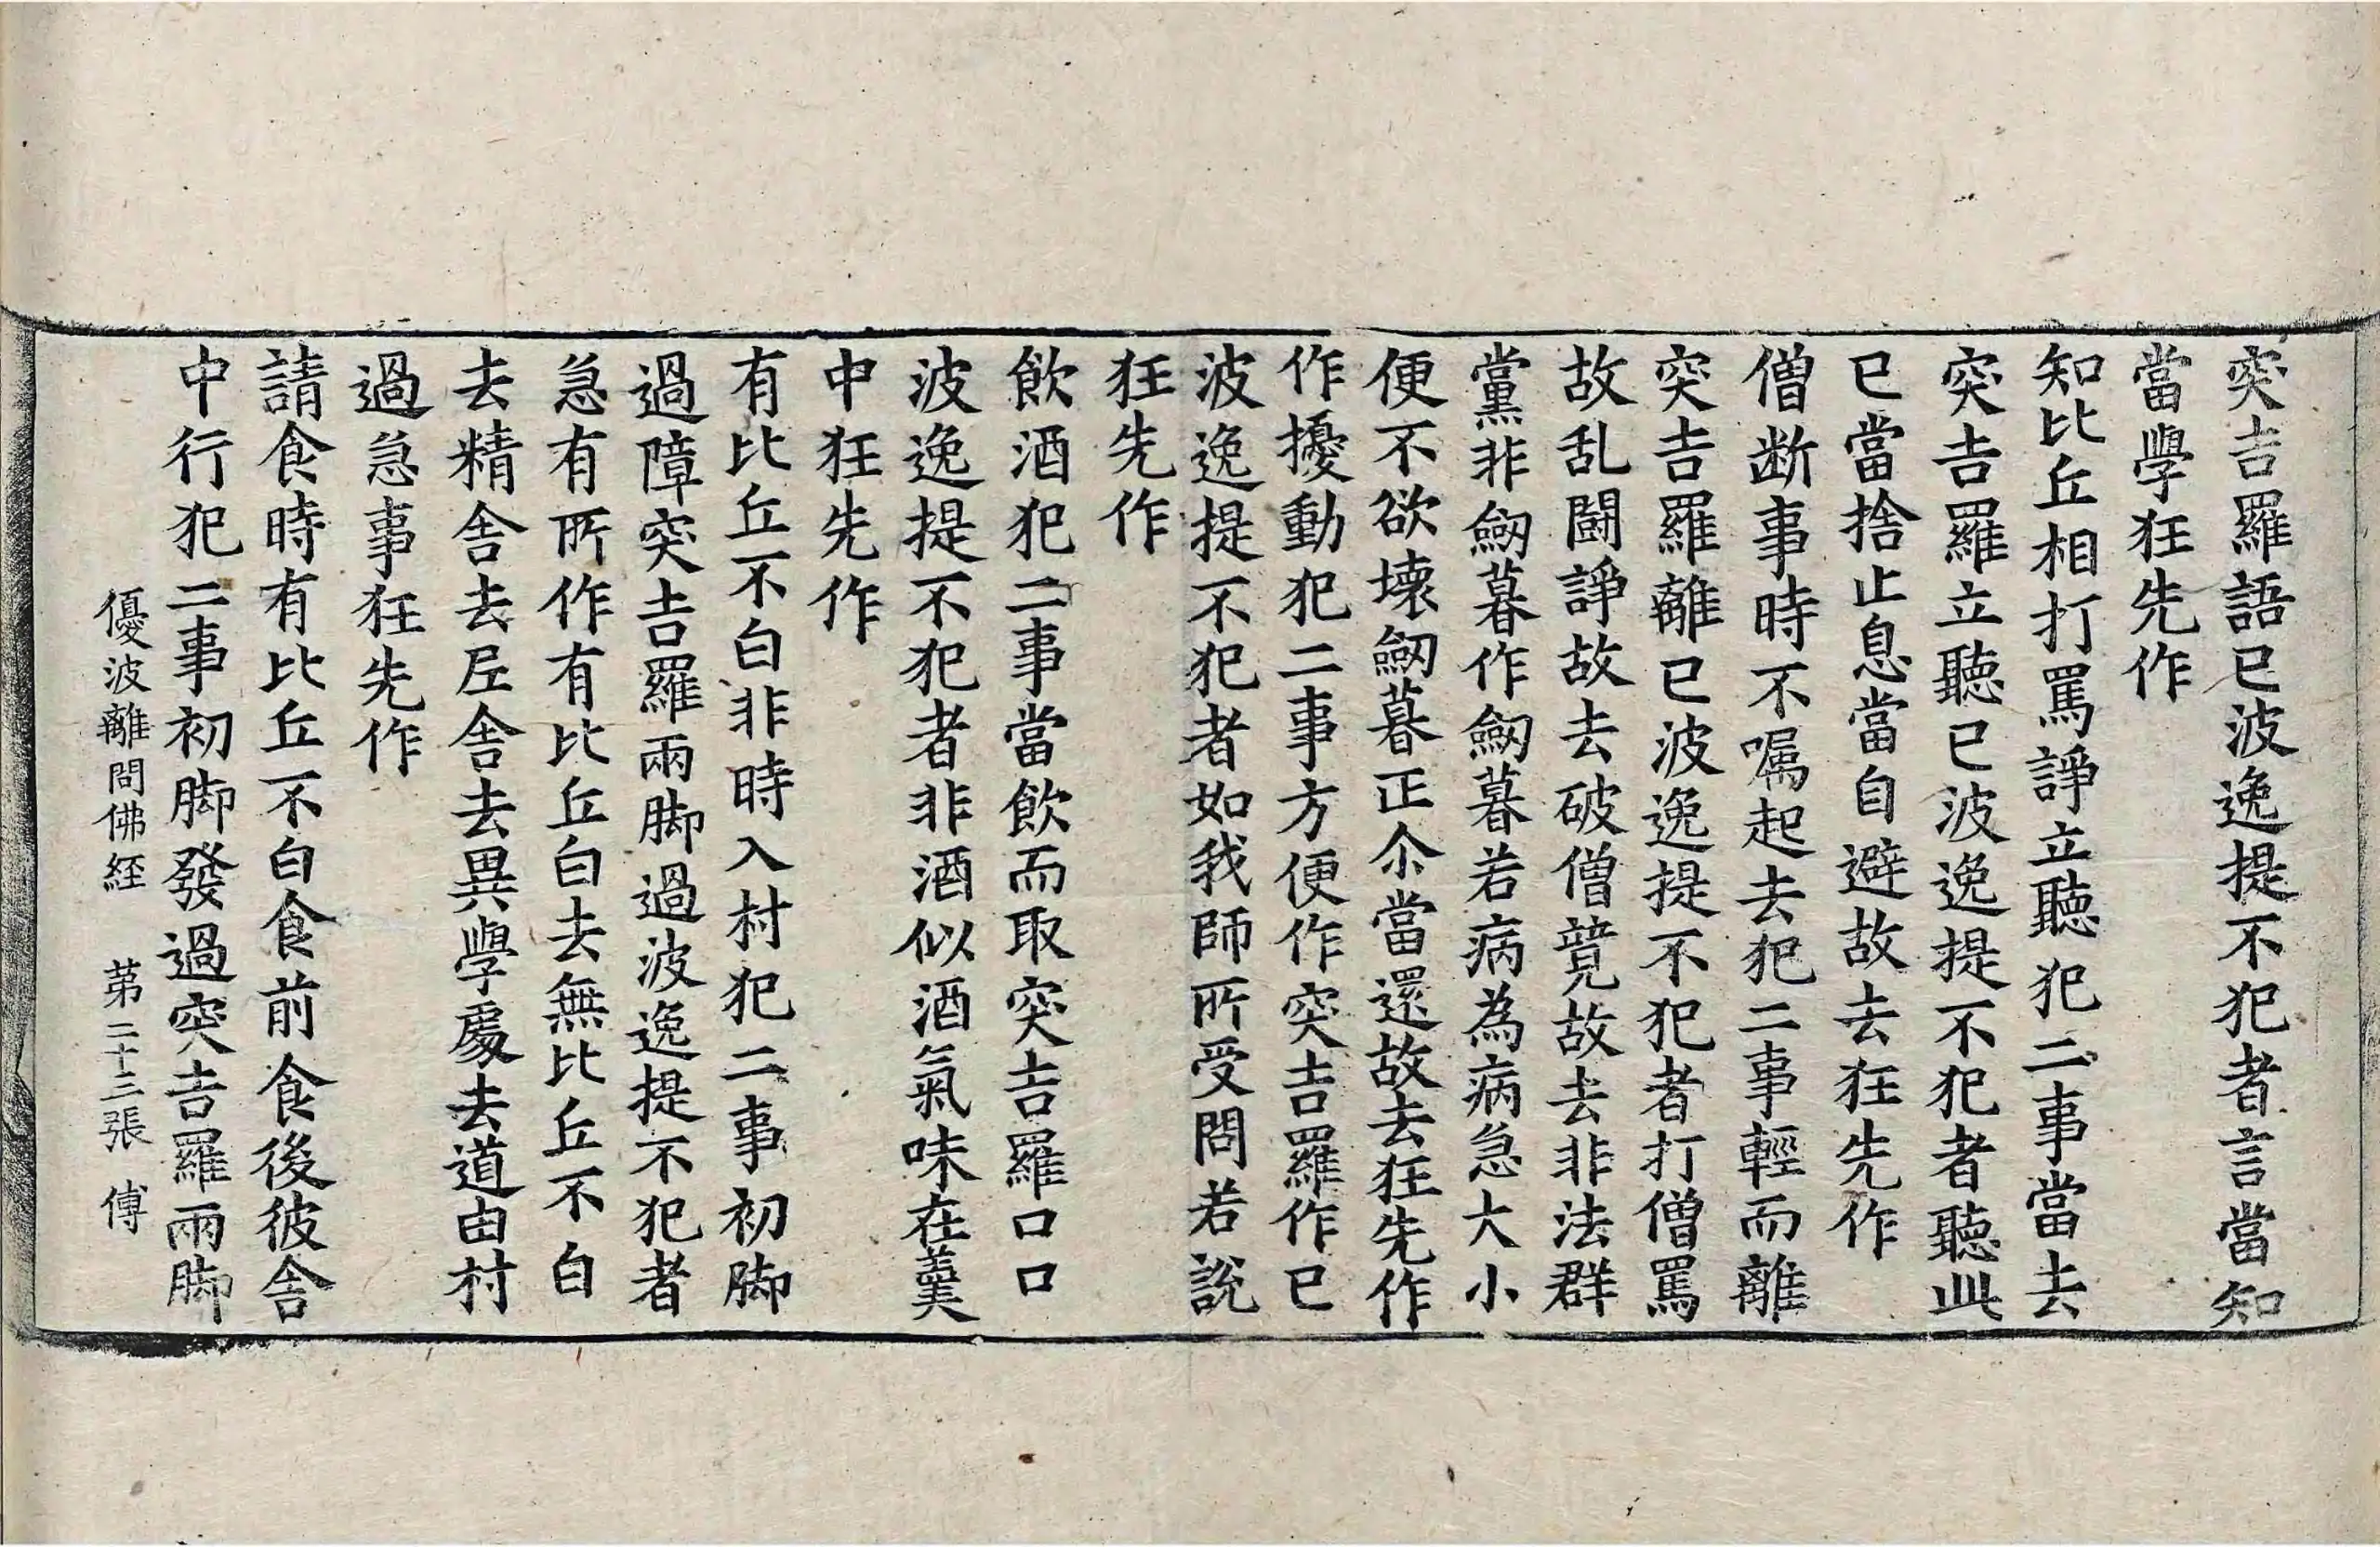 突吉羅語已波逸提不犯者言當知
當學狂先作
知比丘相打罵諍立聽犯二事當去
突吉羅立聽已波逸提不犯者聽此
已當捨止息當自避故去狂先作
僧断事時不嘱起去犯二事輕而離
突吉羅離已波逸提不犯者打僧罵
故乱闘諍故去破僧竟故去非法群
黨非劒暮作劒暮若病為病急大小
便不欲壞劒暮正尒當還故去狂先作
作擾動犯二事方便作突吉羅作已
波逸提不犯者如我師所受問若說
狂先作
飲酒犯二事當飲而取突吉羅口口
波逸提不犯者非酒似酒氣味在羹
中狂先作
有比丘不白非時入村犯二事初脚
過障突吉羅兩脚過波逸提不犯者
急有所作有比丘白去無比丘不白
去精舍去𡰱舍去異學處去道由村
過急事狂先作
請食時有比丘不白食前食後彼舍
中行犯二事初脚發過突吉羅兩脚
優波離問佛經 苐二十三張 傅